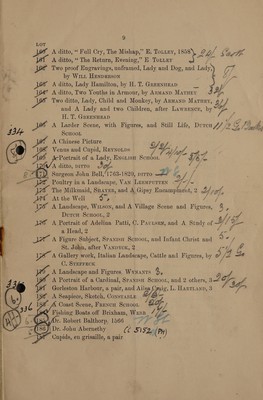 9
LOT
160 A ditto, "Full Cry, The Mishap," E. TOLLEY, 1854
161 A ditto, "The Return, Evening," E TOLLEY
162 Two proof Engravings, unframed, Lady and Dog, and Lady,
by WILL HENDERSON
163 A ditto, Lady Hamilton, by H. T. GREENHEAD
164 A ditto, Two Youths in Armour, by ARMAND MATHEY
165 Two ditto, Lady, Child and Monkey, by ARMAND MATHEY,
and A Lady and two Children, after LAWRENCE, by
H. T. GREENHEAD
166 A Larder Scene, with Figures, and Still Life, DUTCH
SCHOOL
334
167 A Chinese Picture
168 Venus and Cupid, REYNOLDS
169 A Portrait of a Lady, ENGLISH SCHOOL
170 A ditto, DITTO
171 Surgeon John Ball, 1763-1829, DITTO
172 Poultry in a Landscape, VAN LEEMPUTTEN
173 The Milkmaid, SHAYER, and A Gipsy Encampment, 2
174 At the Well
175 A Landscape, WILSON, and A Village Scene and Figures,
DUTCH SCHOOL, 2
176 A Portrait of Adelina Patti, C. PAULSEN, and A Study of
a Head, 2
177 A Figure Subject, SPANISH SCHOOL, and Infant Christ and
St. John, after VANDYCK, 2
178 A Gallery work, Italian Landscape, Cattle and Figures, by
C. STEFFECK
179 A Landscape and Figures. WYNANTS
180 A Portrait of a Cardinal, SPANISH SCHOOL, and 2 others, 3
181 Gorleston Harbour, a pair, and Ailsa Craig, L. HARTLAND, 3
182 A Seapiece, Sketch, CONSTABLE
336
183 A Coast Scene, FRENCH SCHOOL
184 Fishing Boats off Brixham, WEBB
185 Dr. Robert Balthorp, 1566
186 Dr. John Abernethy
187 Cupids, en grisaille, a pair